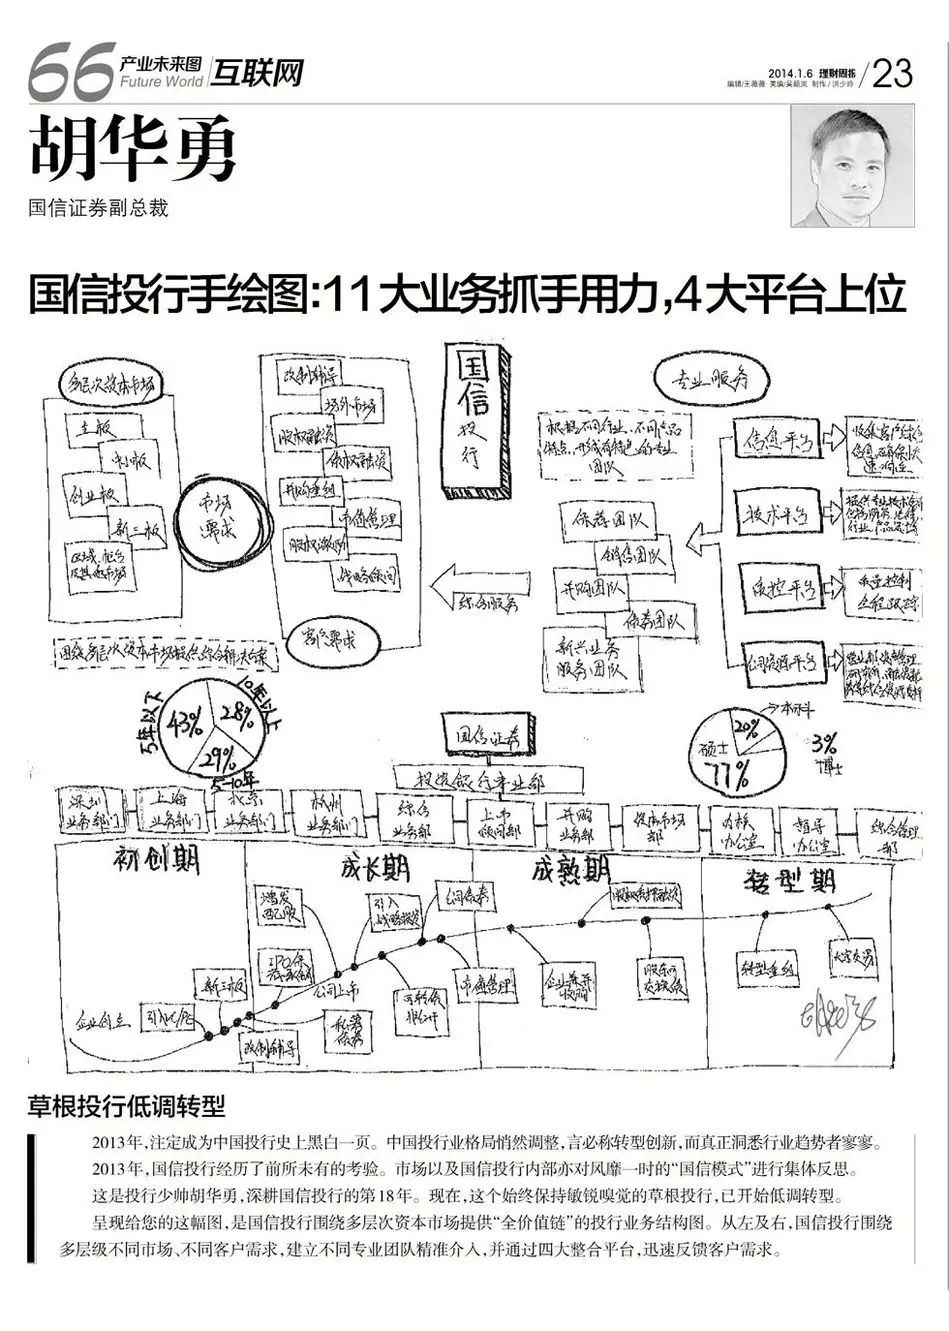 66 产业未来图 Future World 互联网
2014.1.6 理财周报 / 23
编辑/王薇薇 美编/吴颖岚 制作/洪少玲
胡华勇
国信证券副总裁
国信投行手绘图:11大业务抓手用力,4大平台上位
多层次资本市场
主板
中小板
创业板
新三板
市场
需求
改制辅导
场外市场
股权融资
债权融资
并购重组
市值管理
股权激励
战略顾问
客户需求
围绕多层次资本市场提供综合解决方案
国信
投
行
专业服务
根据不同行业、不同产品
特点,形成有特色的专业
团队
保荐团队
销售团队
并购团队
债券团队
新兴业务
服务团队
综合服务
信息平台
技术平台
质控平台
质量控制
全程跟踪
公司资源平台
5年以下
43%
10年以上
28%
29%
5-10年
国信证券
投资银行事业部
本科
20%
硕士
77%
3%
博士
深圳
业务部门
上海
业务部门
北京
业务部门
杭州
业务部门
综合
业务部
上市
顾问部
并购
业务部
资本市场
部
内核
办公室
督导
办公室
综合管理
部
初创期
成长期
成熟期
转型期
企业创立
引入VC/PE
新三板
改制辅导
IPO保
荐承销
公司上市
增发
配股
私募
债券
引入
战略投资
可转债
公司债券
市值管理
企业兼并
收购
转型重组
大宗交易
草根投行低调转型
2013年,注定成为中国投行史上黑白一页。中国投行业格局悄然调整,言必称转型创新,而真正洞悉行业趋势者寥寥。
2013年,国信投行经历了前所未有的考验。市场以及国信投行内部亦对风靡一时的“国信模式”进行集体反思。
这是投行少帅胡华勇,深耕国信投行的第18年。现在,这个始终保持敏锐嗅觉的草根投行,已开始低调转型。
呈现给您的这幅图,是国信投行围绕多层次资本市场提供“全价值链”的投行业务结构图。从左及右,国信投行围绕
多层级不同市场、不同客户需求,建立不同专业团队精准介入,并通过四大整合平台,迅速反馈客户需求。